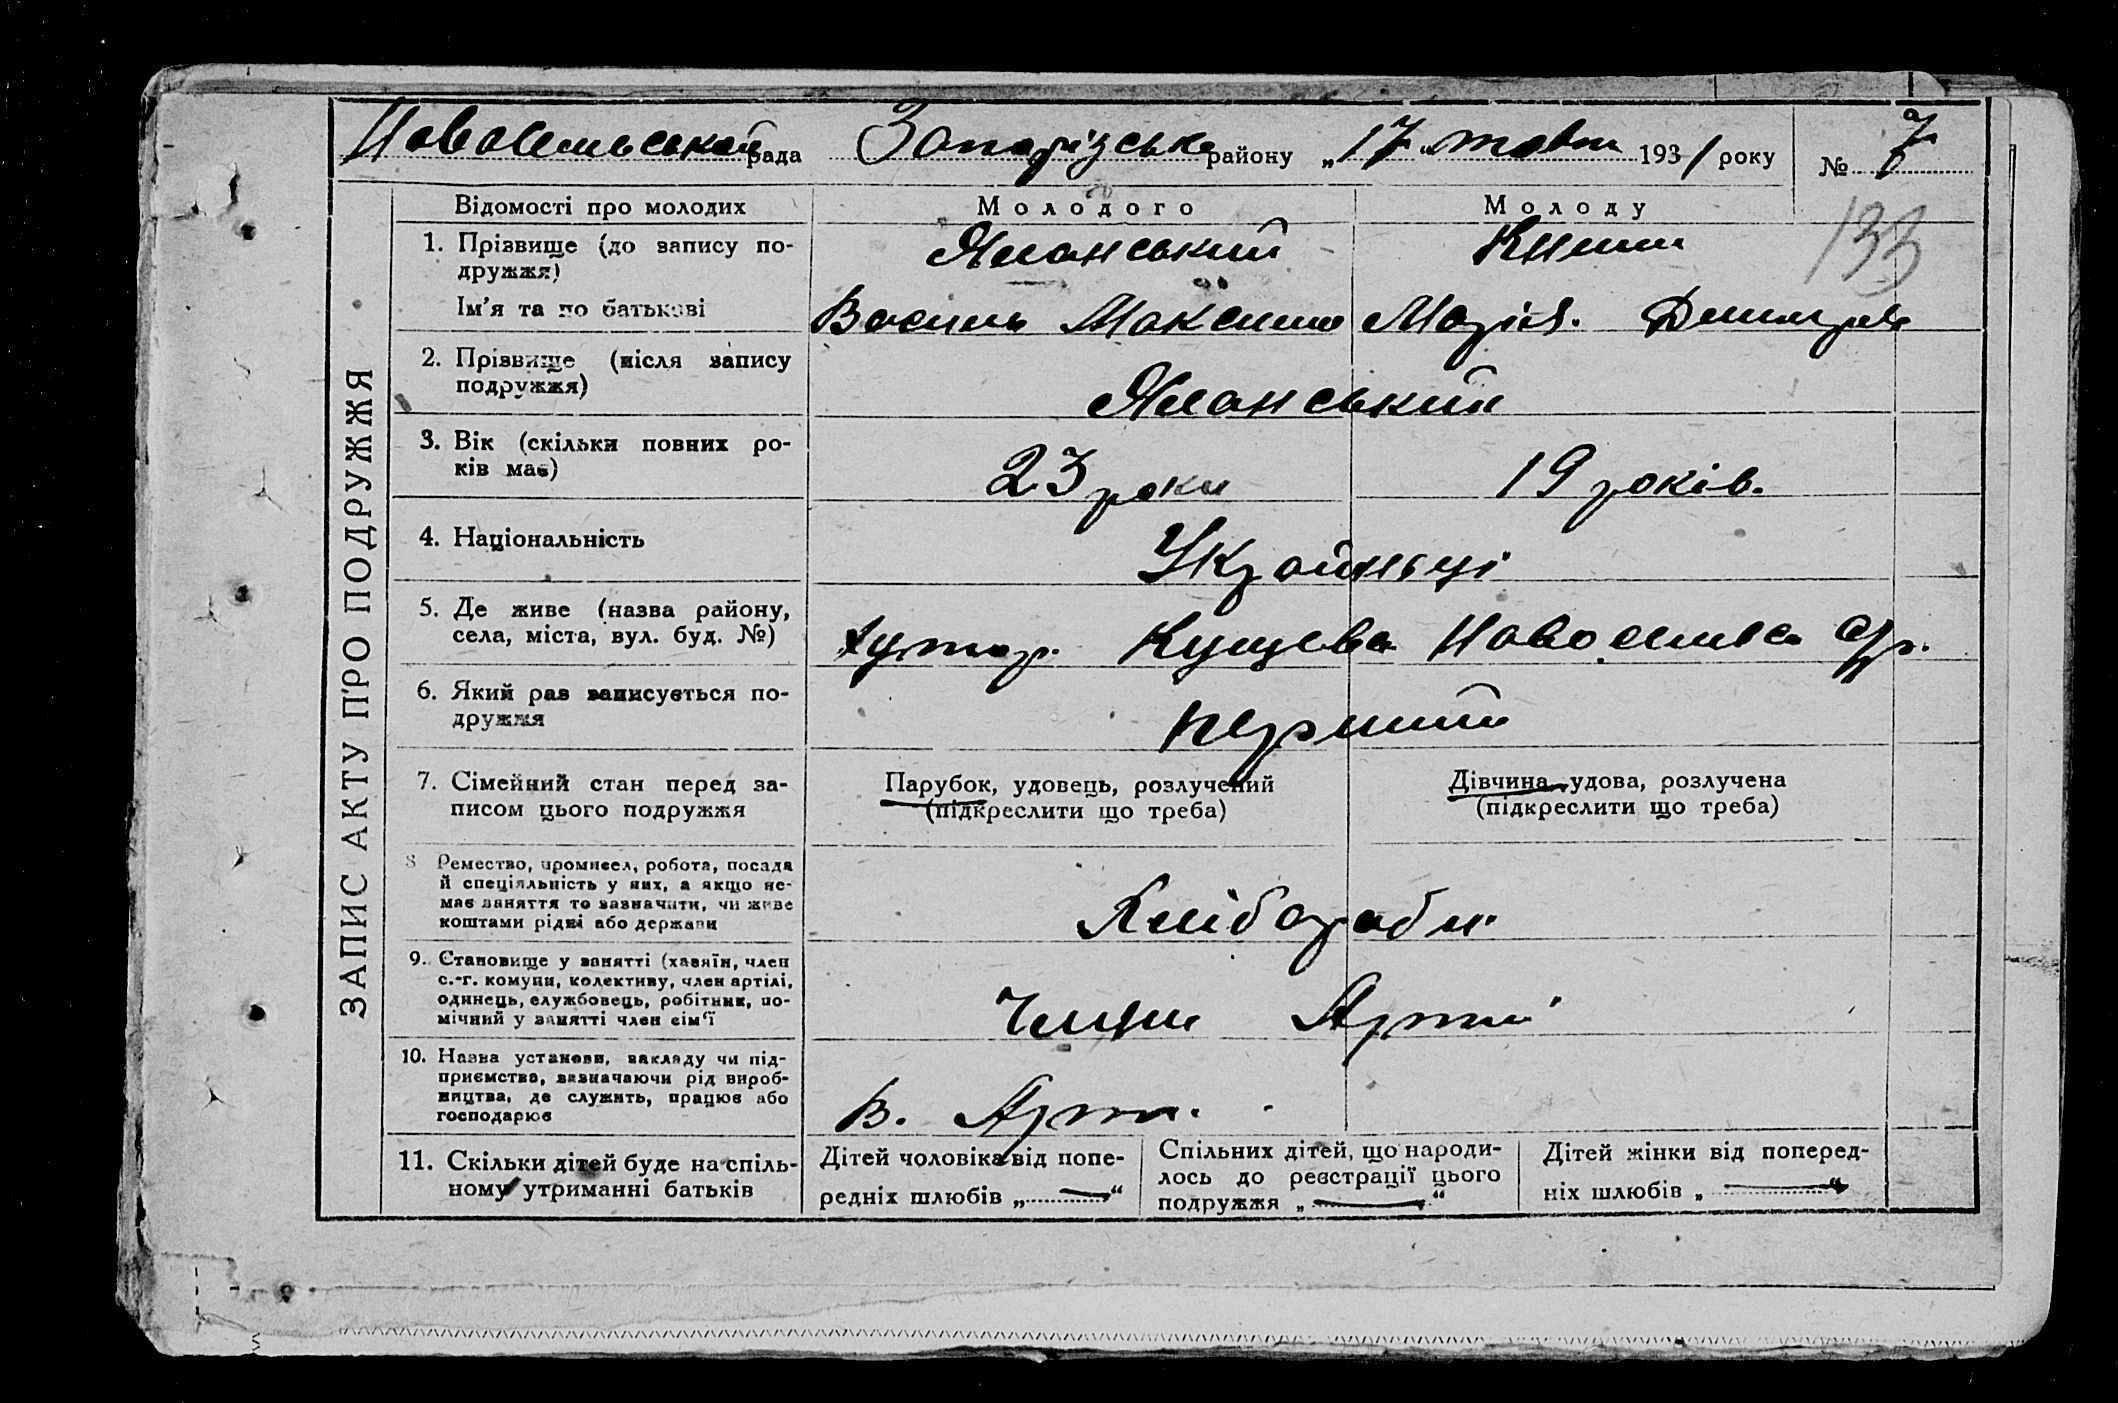 Новоселської рада Запорізське району „17" жовт 1931 року № 7
133
Відомості про молодих Молодого Молоду
1. Прізвище (до запису по-
дружжя) Яланський Книш
Ім'я та по батькові Василь Максимо Марія. Дмитров
2. Прізвище (після запису
подружжя) Яланський
3. Вік (скільки повних ро-
ків має) 23 роки 19 років.
4. Національність Україньці
5. Де живе (назва району,
села, міста, вул. буд. №) хутор. Кущева Новоселивс ср.
6. Який раз записується по-
дружжя перший
7. Сімейний стан перед за-
писом цього подружжя
Парубок, удовець, розлучений
(підкреслити що треба)
Дівчина, удова, розлучена
(підкреслити що треба)
8 Ремество, промисел, робота, посада
й спеціяльність у них, а якщо не-
має заняття то зазначити, чи живе
коштами рідні або держави
Хлібороби
9. Становище у занятті (хазяїн, член
с.-г. комуни, колективу, член артілі,
одинець, службовець, робітник, по-
мічний у занятті член сім'ї
Члени Артілі
10. Назва установи, закладу чи під-
приємства, зазначаючи рід вироб-
ництва, де служить, працює або
господарює
В. Арті.
11. Скільки дітей буде на спіль-
ному утриманні батьків
Дітей чоловіка від попе-
редніх шлюбів „—"
Спільних дітей, що народи-
лось до реєстрації цього
подружжя „—"
Дітей жінки від поперед-
ніх шлюбів „—"
ЗАПИС АКТУ ПРО ПОДРУЖЖЯ